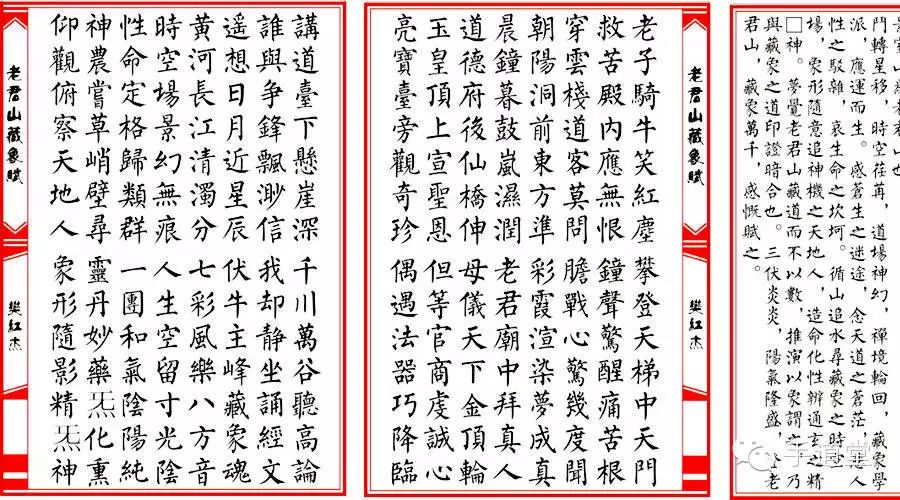 鬥轉星移,時空荏苒,道場神幻,禪境輪回,藏象學
派,應運而生。感蒼生之迷途,念天道之蒼茫,悲人
性之駁雜,哀生命之坎坷。循山追水尋藏象之時空
場,象形隨意追神機之天地人,造命化性辨通玄之精
□神。夢覺老君山藏道而不以數,推演以象謂之,乃
與藏象之道印證暗合也。三伏炎炎,陽氣隆盛,登老
君山,藏象萬千,感慨賦之。
老君山藏象賦
樊紅杰
老子騎牛笑紅塵 攀登天梯中天門
救苦殿内應無恨 鐘聲驚醒痛苦根
穿雲棧道客莫問 膽戰心驚幾度聞
朝陽洞前東方準 彩霞渲染夢成真
晨鐘暮鼓嵐濕潤 老君廟中拜真人
道德府後仙橋伸 母儀天下金頂輪
玉皇頂上宣聖恩 但等官商虔誠心
亮寶臺旁觀奇珍 偶遇法器巧降臨
講道臺下懸崖深 千川萬谷聽高論
誰與爭鋒飄渺信 我却静坐誦經文
遥想日月近星辰 伏牛主峰藏象魂
黄河長江清濁分 七彩風樂八方音
時空場景幻無痕 人生空留寸光陰
性命定格歸類群 一團和氣陰陽純
神農嘗草峭壁尋 靈丹妙藥炁化熏
仰觀俯察天地人 象形隨影精炁神
老君山藏象賦
樊紅杰